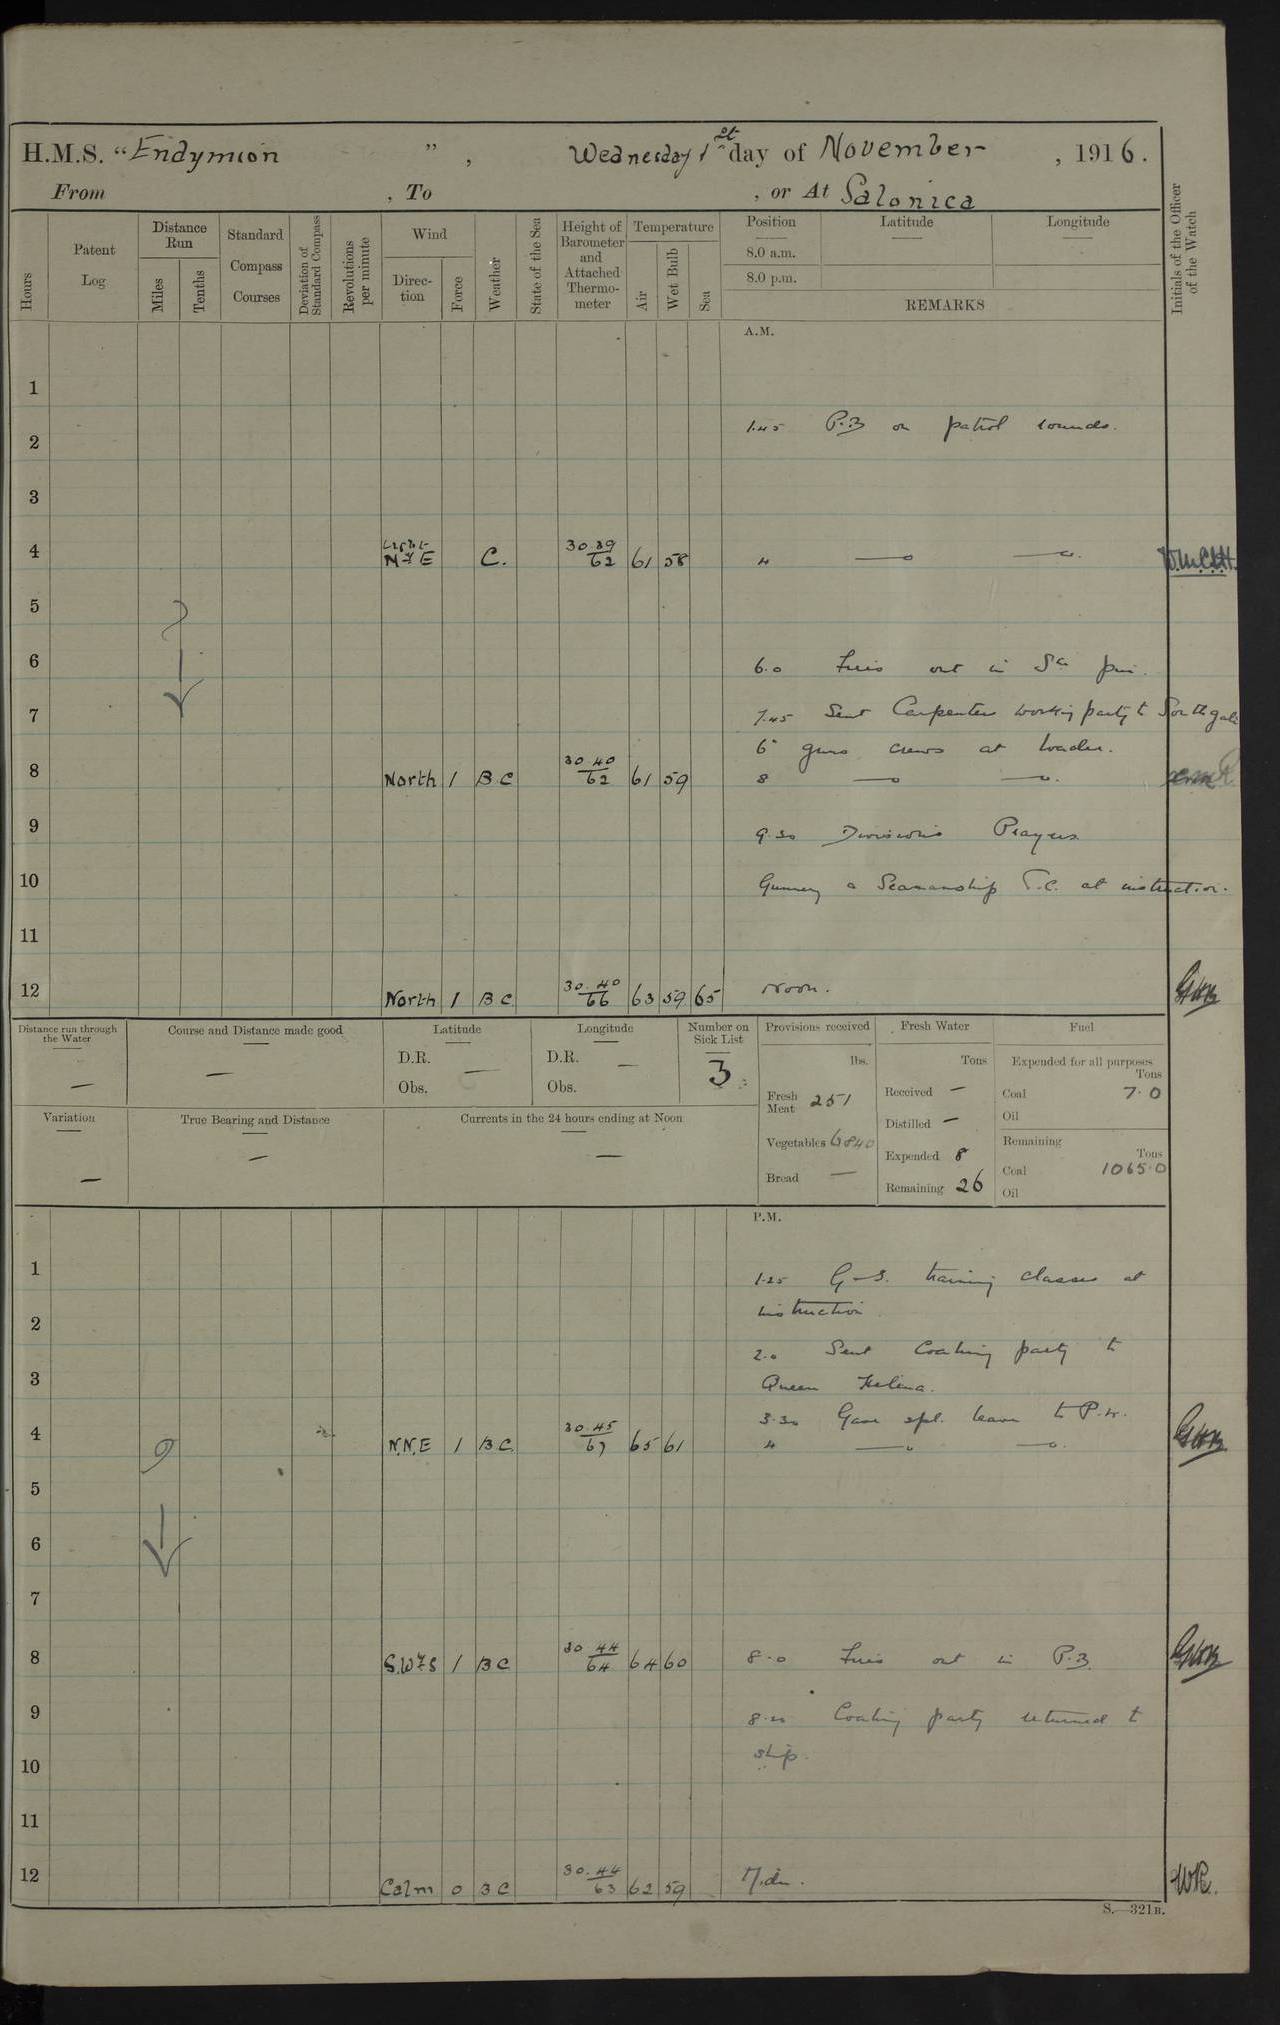 H.M.S. "Endymion", Wednesday 1st day of November, 1916.
From , To , or At Salonica
Hours
Patent Log
Distance Run
Miles
Tenths
Standard Compass Courses
Deviation of Standard Compass
Revolutions per minute
Wind
Direction
Force
Weather
State of the Sea
Height of Barometer and Attached Thermometer
Temperature
Air
Wet Bulb
Sea
Position
8.0 a.m.
8.0 p.m.
Latitude
Longitude
REMARKS
Initials of the Officer of the Watch
A.M.
1
1.45 P.B on patrol rounds.
2
3
4 Light N E C. 30.39 62 61 58 4
5
6
6.0 Fires out in Sn pin.
7
7.45 Sent Carpenters working party to Southgate
6" guns crews at loader.
8 North 1 BC 30.40 62 61 59 8
9
9.30 Divisions Prayers
10
Gunnery & Seamanship T.C. at instruction.
11
12 North 1 BC 30.40 66 63 59 65 Noon. GHB
Distance run through the Water —
Course and Distance made good —
Latitude
D.R. —
Obs.
Longitude
D.R. —
Obs.
Number on Sick List
3
Provisions received
lbs.
Fresh Meat 251
Vegetables 6840
Bread —
Fresh Water
Tons
Received —
Distilled —
Expended 8
Remaining 26
Fuel
Expended for all purposes
Tons
Coal 7.0
Oil
Remaining
Tons
Coal 1065.0
Oil
Variation —
True Bearing and Distance —
Currents in the 24 hours ending at Noon —
P.M.
1
1.25 G-S. training classes at
instruction
2
2.0 Sent Coaling party to
3
Queen Helena.
3.30 Gave spl. leave to P.W.
4 N.N.E 1 BC 30.45 67 65 61 4 GHB
5
6
7
8 S.W S 1 BC 30.44 64 64 60 8.0 Fires out in P.B. GHB
9
8.20 Coaling party returned to
ship.
10
11
12 Calm 0 BC 30.44 63 62 59 Midn.
S.—321B.